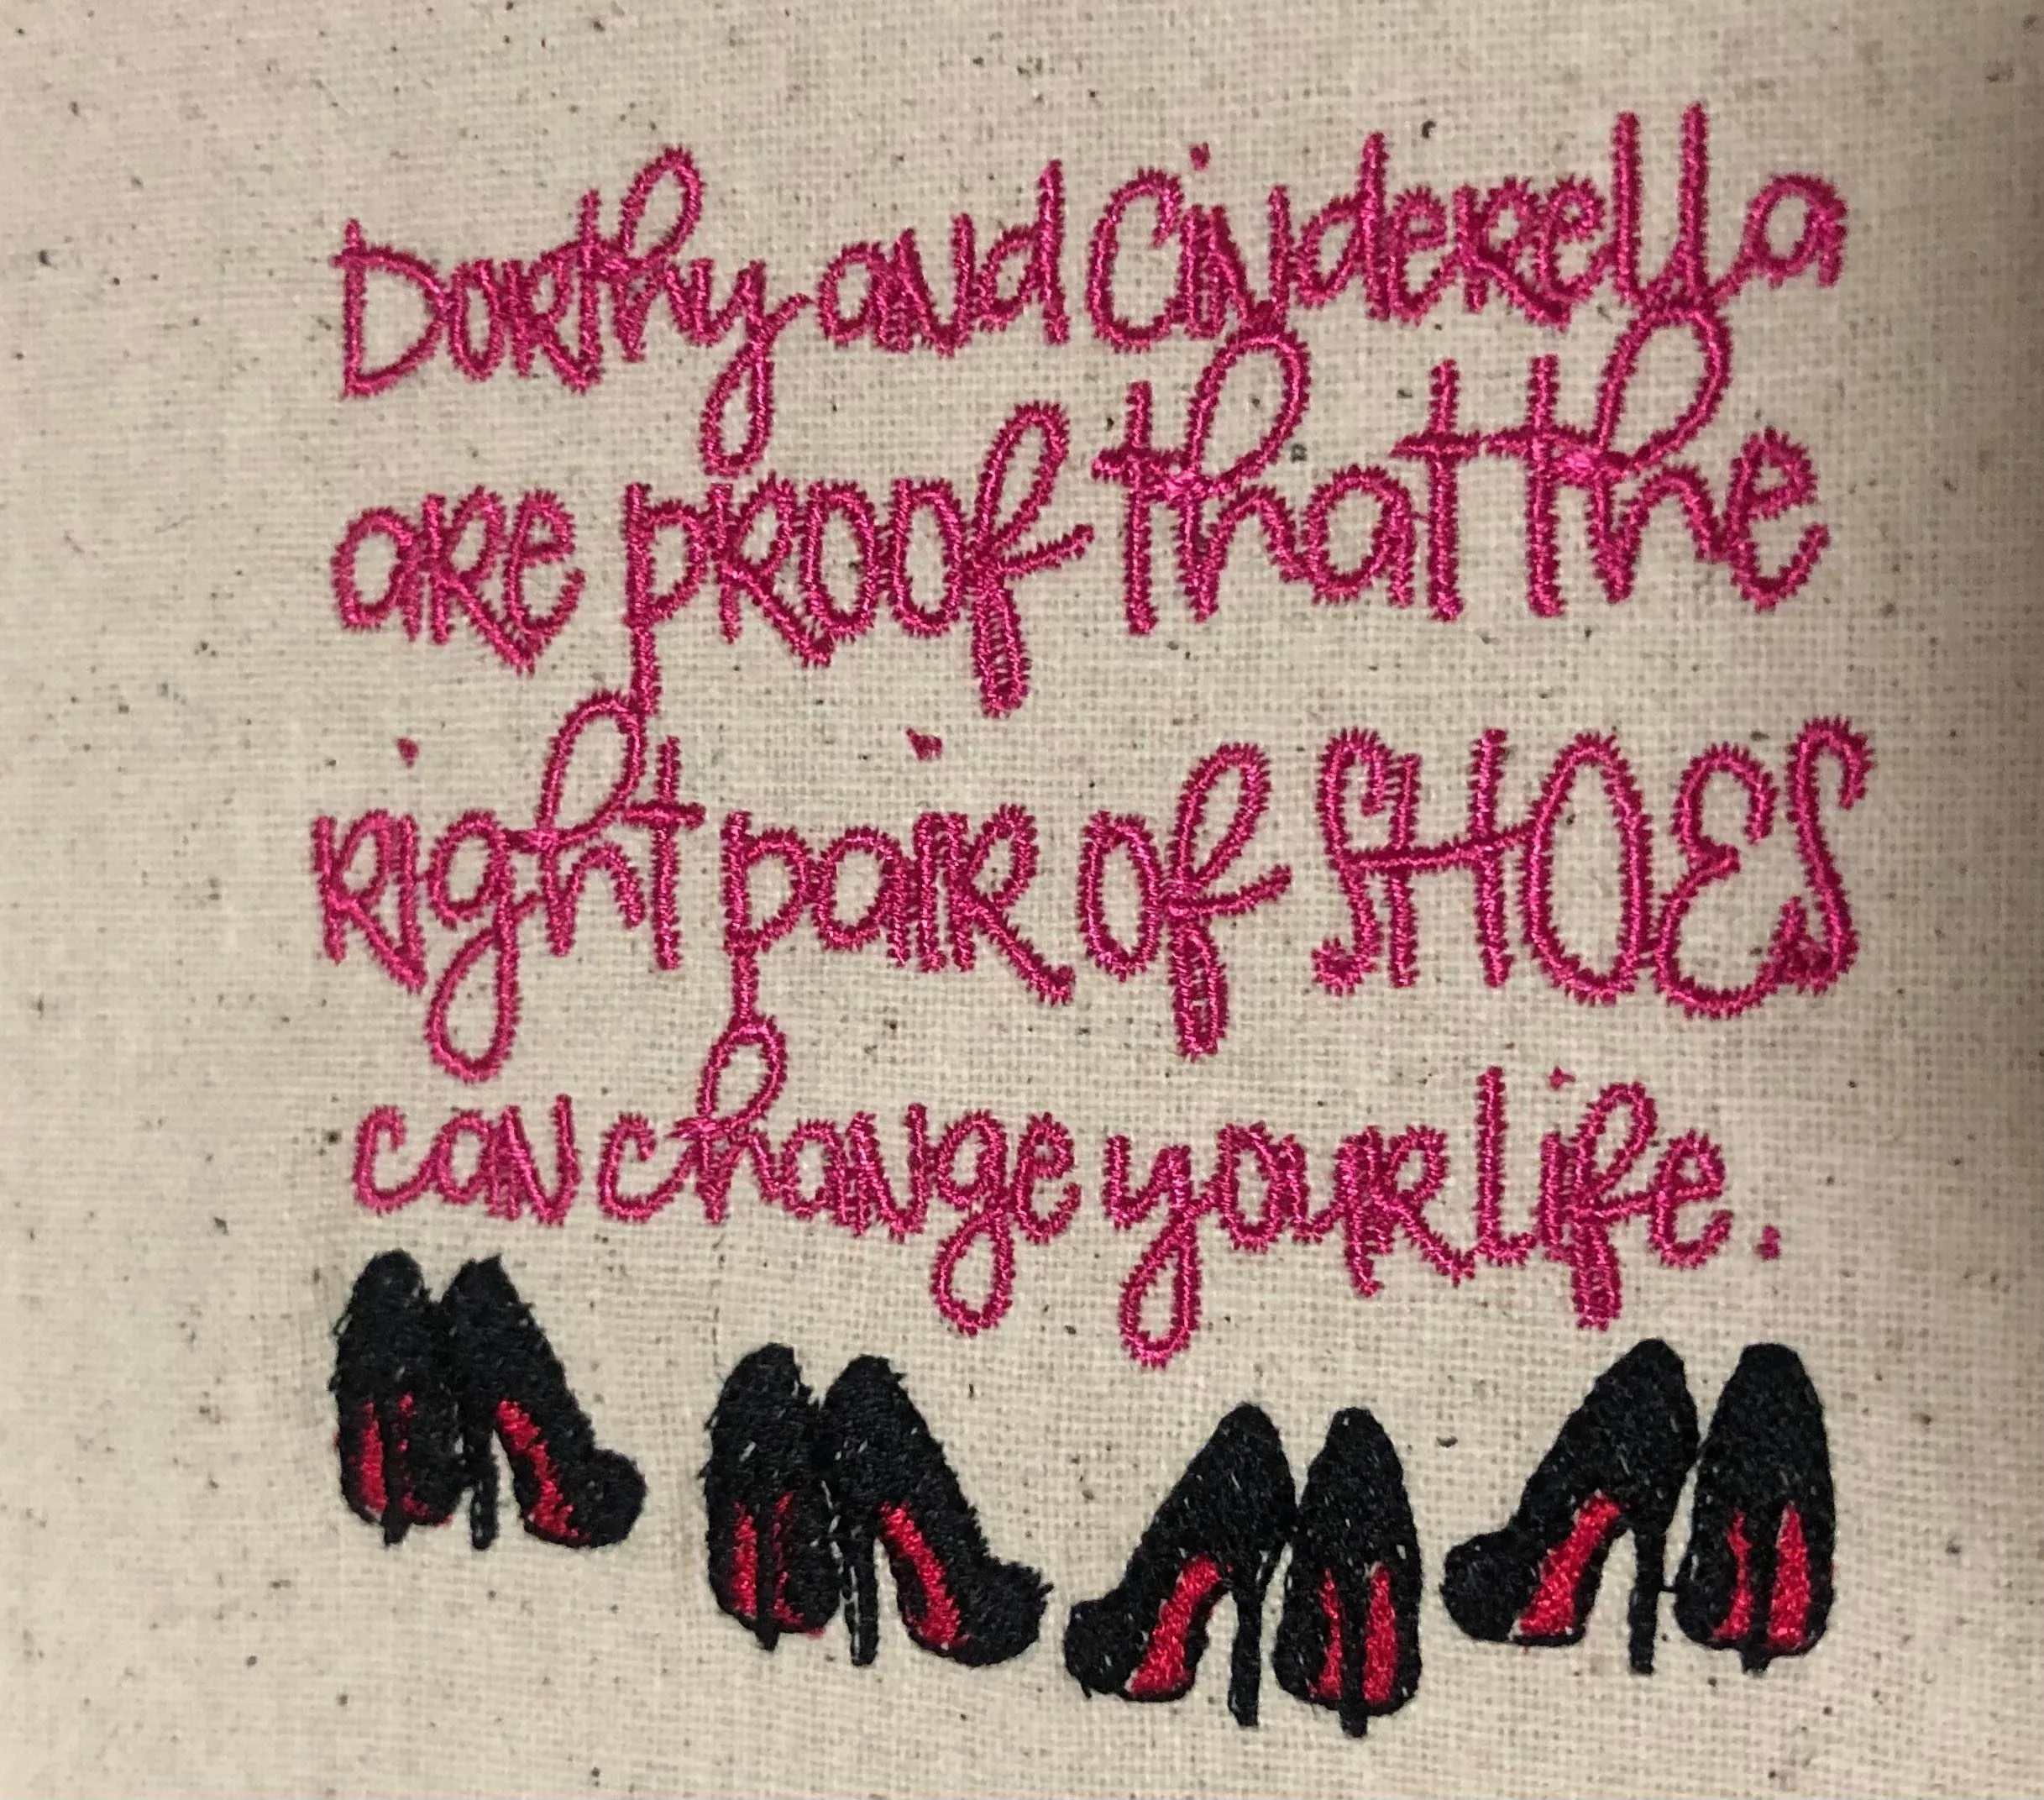 Dorthy and Cinderella
are proof that the
right pair of SHOES
can change your life.